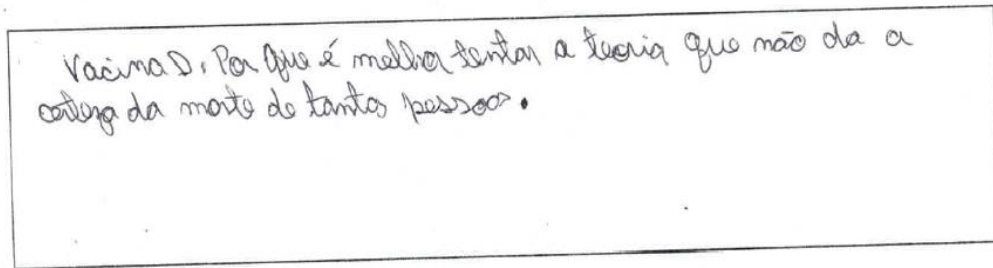 Vacina D. Por que é melhor tentar a teoria que não da a
certeza da morte de tantas pessoas.